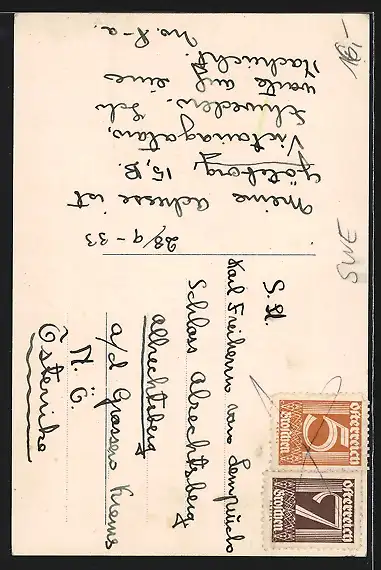 28/9-33
Meine Adresse ist
Göteborg, 15, B.
Victoriagatan,
Schweden. Ich
warte auf eine
Nachricht
S. H.
Karl Freiherrn von Lempruch
Schloss Albrechtsberg
Albrechtsberg
a/d Grossen Krems
N. Ö.
Österrike
Österreich
5
Groschen
Österreich
7
Groschen
SWE
16,-